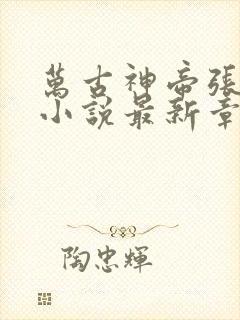 萬古神帝張
小說最新章
陶忠輝